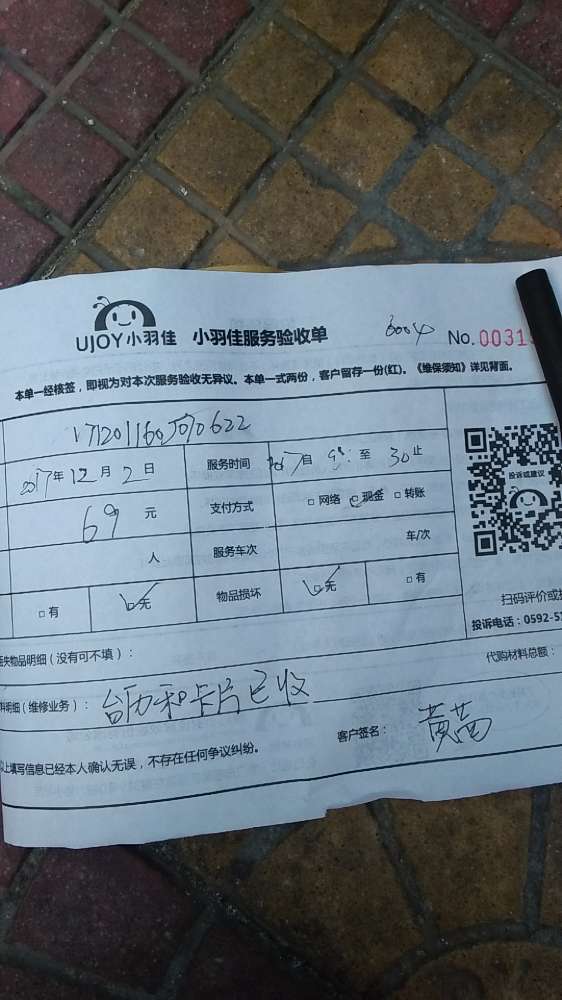 UJOY小羽佳 小羽佳服务验收单 6004 No. 0031
本单一经核签，即视为对本次服务验收无异议。本单一式两份，客户留存一份(红)。《维保须知》详见背面。
2017年12月2日 服务时间 自 至 30止
69元 支付方式 □网络 □现金 □转账
人 服务车次 车/次
□有 □无 物品损坏 □无 □有
投诉或建议
扫码评价或
投诉电话：0592-5
失物品明细（没有可不填）：
代购材料总额：
料明细（维修业务）：台历和卡片已收
以上填写信息已经本人确认无误，不存在任何争议纠纷。
客户签名：黄茜